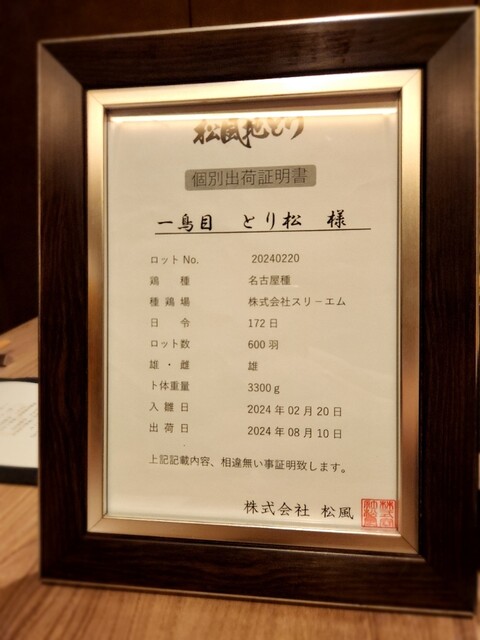 松風地どり
個別出荷証明書
一鳥目 とり松 様
ロット No. 20240220
鶏種 名古屋種
種鶏場 株式会社スリーエム
日令 172日
ロット数 600羽
雄・雌 雄
ト体重量 3300g
入雛日 2024年02月20日
出荷日 2024年08月10日
上記記載内容、相違無い事証明致します。
株式会社 松風